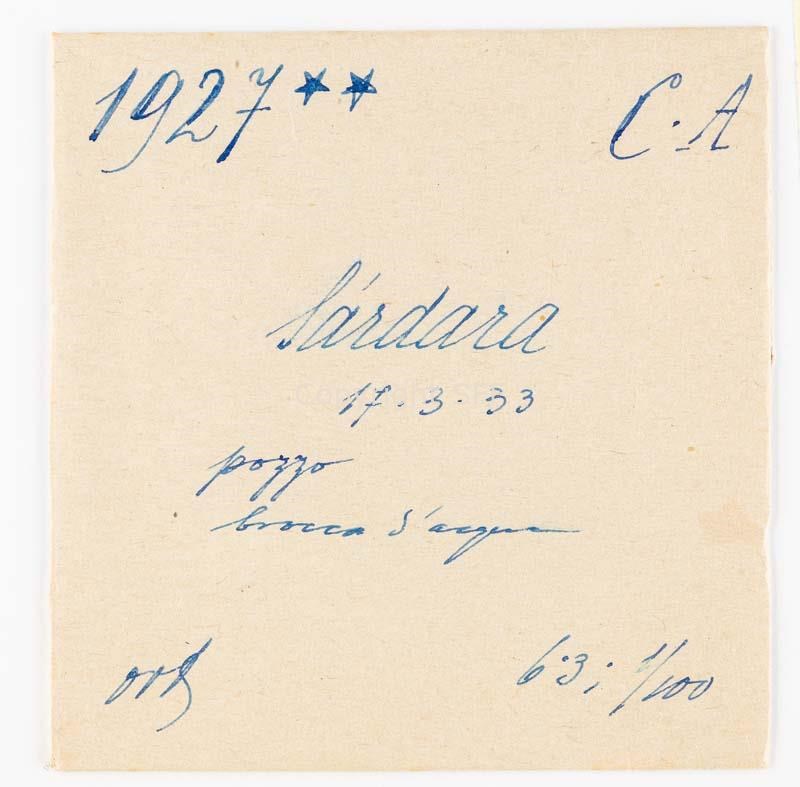 1927 ★★ C. A
Sárdara
17. 3. 33
pozzo
brocca d'acqua
6.3; 1/100